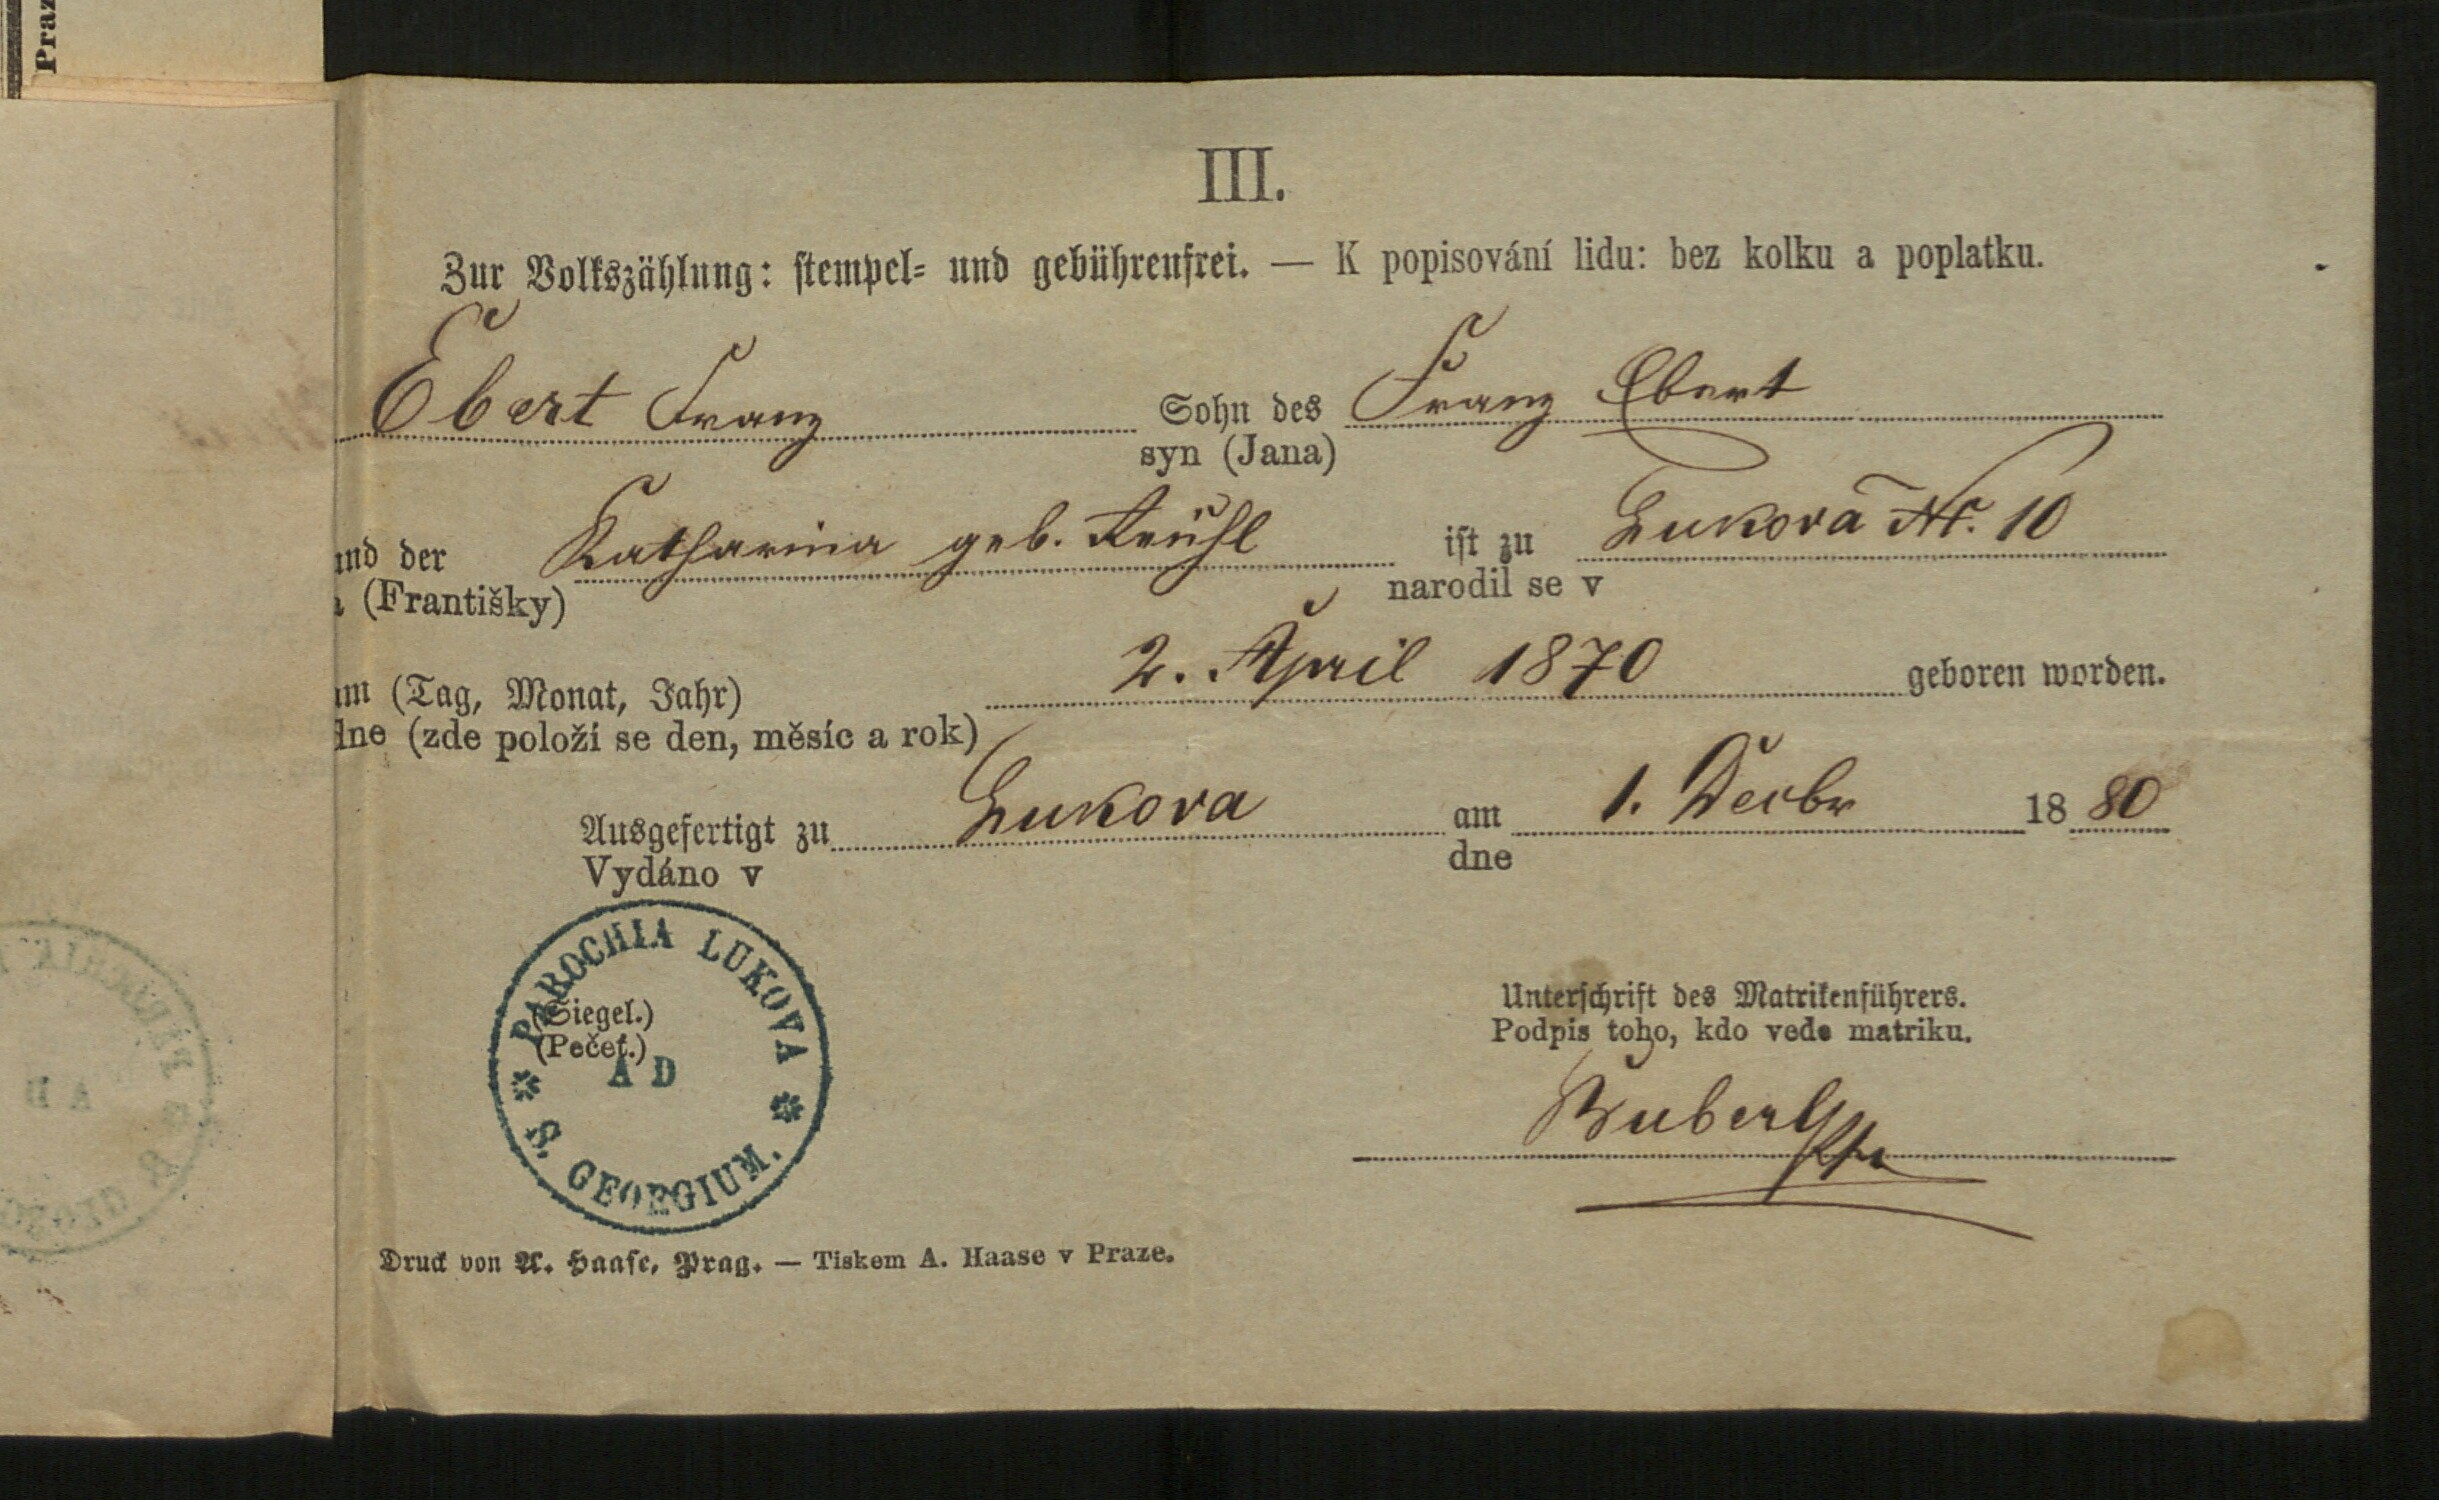 Praz
III.
Zur Volkszählung: stempel- und gebührenfrei. — K popisování lidu: bez kolku a poplatku.
Ebert Franz Sohn des Franz Ebert
syn (Jana)
und der Katharina geb. ist zu Lukova Nr. 10
a (Františky) narodil se v
am (Tag, Monat, Jahr) 2. April 1870 geboren worden.
dne (zde položí se den, měsíc a rok)
Ausgefertigt zu Lukova am 1. Decbr 1880
Vydáno v dne
PAROCHIA LUKOVA
(Siegel.)
(Pečeť.)
A D
S. GEORGIUM.
Unterschrift des Matrikenführers.
Podpis toho, kdo vede matriku.
Druck von A. Haase, Prag. — Tiskem A. Haase v Praze.